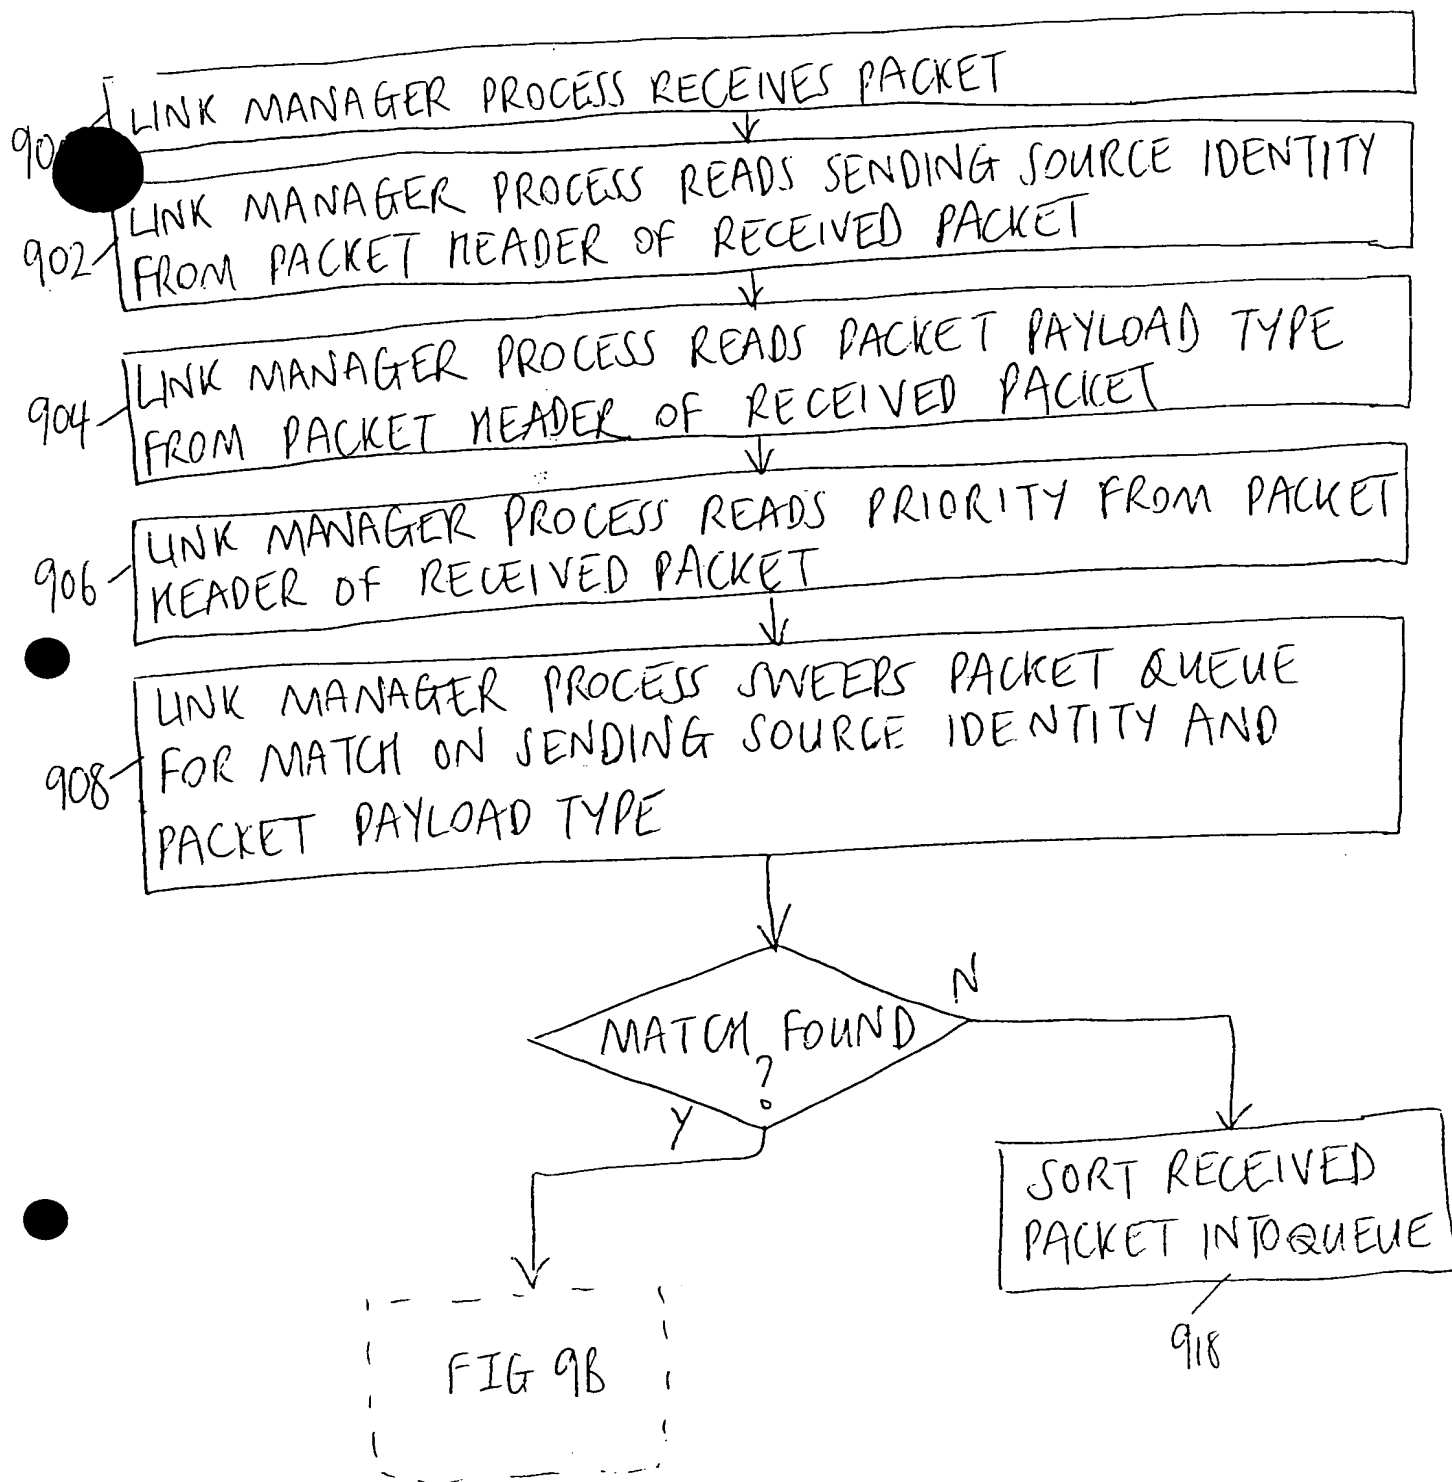 LINK MANAGER PROCESS RECEIVES PACKET
LINK MANAGER PROCESS READS SENDING SOURCE IDENTITY
902
FROM PACKET HEADER OF RECEIVED PACKET
LINK MANAGER PROCESS READS PACKET PAYLOAD TYPE
904
FROM PACKET HEADER OF RECEIVED PACKET
LINK MANAGER PROCESS READS PRIORITY FROM PACKET
906
HEADER OF RECEIVED PACKET
LINK MANAGER PROCESS SWEEPS PACKET QUEUE
FOR MATCH ON SENDING SOURCE IDENTITY AND
908
PACKET PAYLOAD TYPE
N
MATCH FOUND
?
Y
SORT RECEIVED
PACKET INTO QUEUE
918
FIG 9B